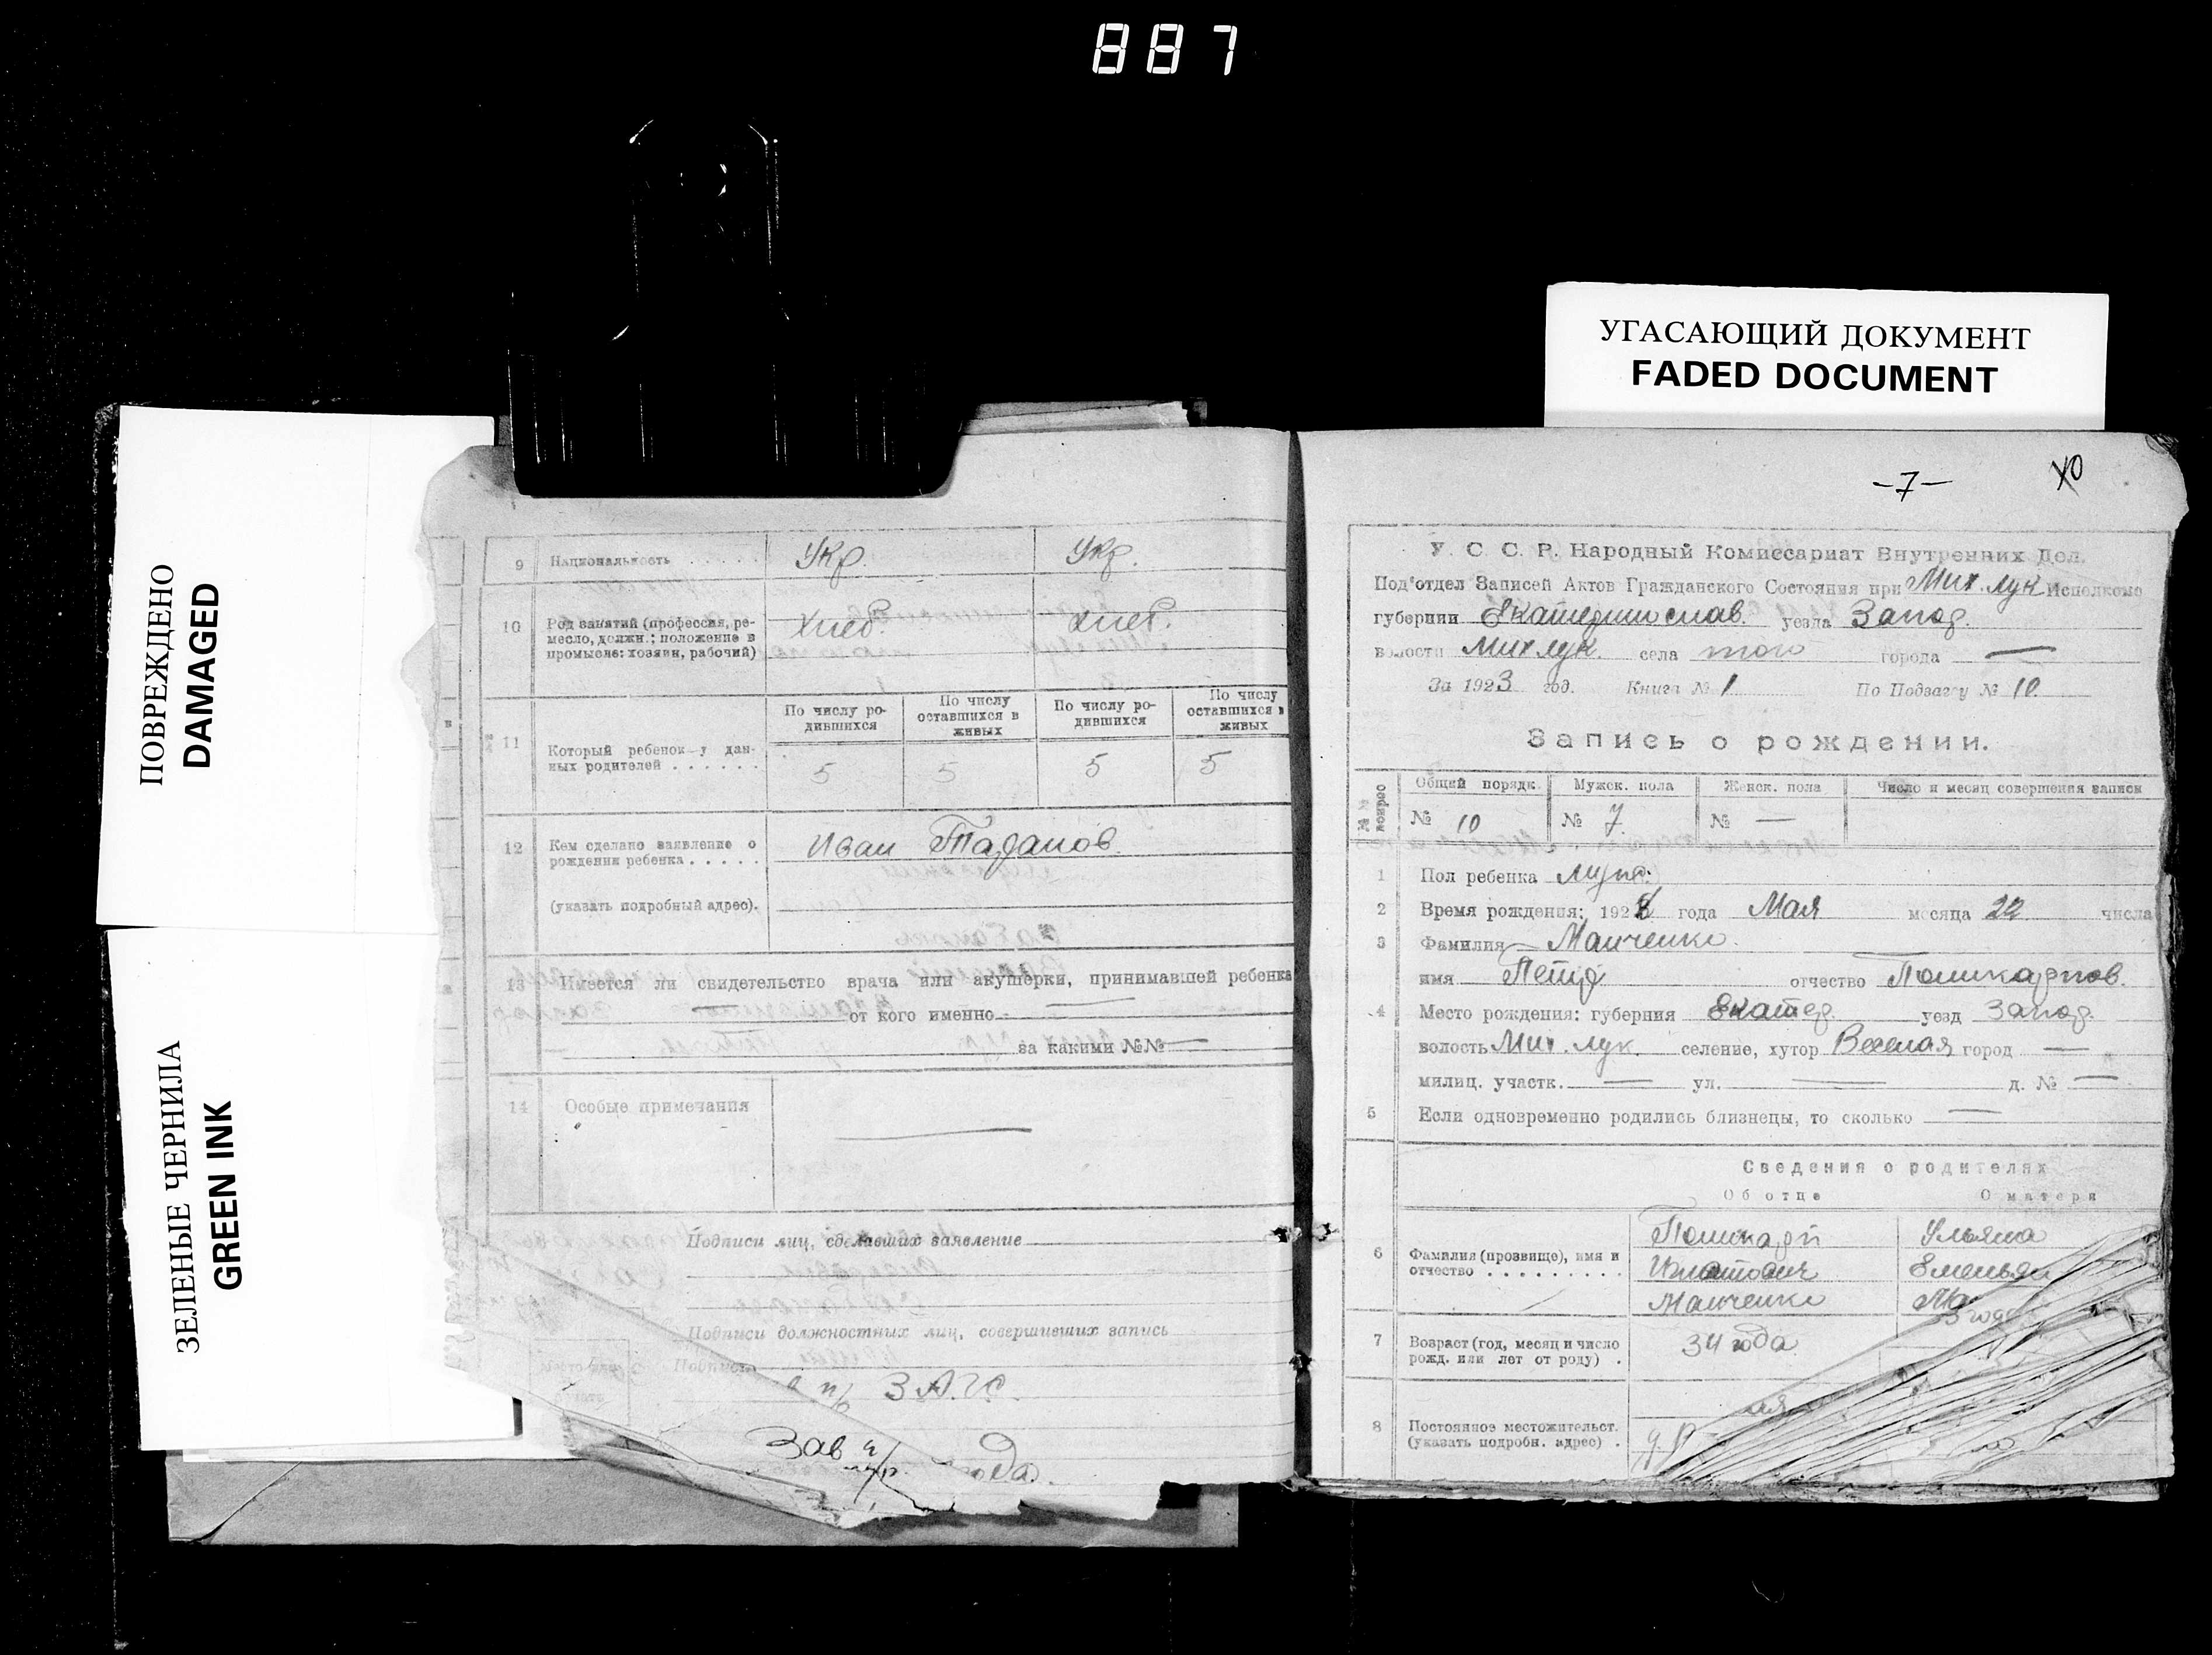 887
УГАСАЮЩИЙ ДОКУМЕНТ
FADED DOCUMENT
ПОВРЕЖДЕНО
DAMAGED
ЗЕЛЕНЫЕ ЧЕРНИЛА
GREEN INK
9 Национальность Укр. Укр.
10 Род занятий (профессия, ре-
месло, должн.; положение в
промысле: хозяин, рабочий)
Хлеб. Хлеб.
11 Который ребенок у дан-
ных родителей . . . . . .
По числу ро-
дившихся
По числу
оставшихся в
живых
По числу ро-
дившихся
По числу
оставшихся в
живых
5 5 5 5
12 Кем сделано заявление о
рождении ребенка . . . . .
Иван Таранов.
(указать подробный адрес).
13 Имеется ли свидетельство врача или акушерки, принимавшей ребенка
— от кого именно —
за какими №№ —
14 Особые примечания —
Подписи лиц, сделавших заявление
Подписи должностных лиц, совершивших запись
Подпись
З.А.Г.С.
Зав
-7- 10
У. С. С. Р. Народный Комиссариат Внутренних Дел.
Под'отдел Записей Актов Гражданского Состояния при Мих. лук Исполкоме
губернии Екатеринослав. уезда Запор.
волости Мих лук. села того города —
За 1923 год. Книга № 1 По Подзагсу № 10
Запись о рождении.
№№ вопрос Общий порядк. Мужск. пола Женск. пола Число и месяц совершения записи
№ 10 № 7. № —
1 Пол ребенка муж.
2 Время рождения: 192 года Мая месяца 22 числа
3 Фамилия Манченко.
имя Петр отчество Поликарпов.
4 Место рождения: губерния Екатер. уезд Запор.
волость Мих. лук. селение, хутор Веселая город —
милиц. участк. — ул. — д. № —
5 Если одновременно родились близнецы, то сколько —
Сведения о родителях
Об отце О матери
6 Фамилия (прозвище), имя и
отчество . . . . . . . . .
Поликарп
Игнатович
Манченко
Ульяна
Емельян
7 Возраст (год, месяц и число
рожд. или лет от роду) .
34 года
8 Постоянное местожительст.
(указать подробн. адрес) .